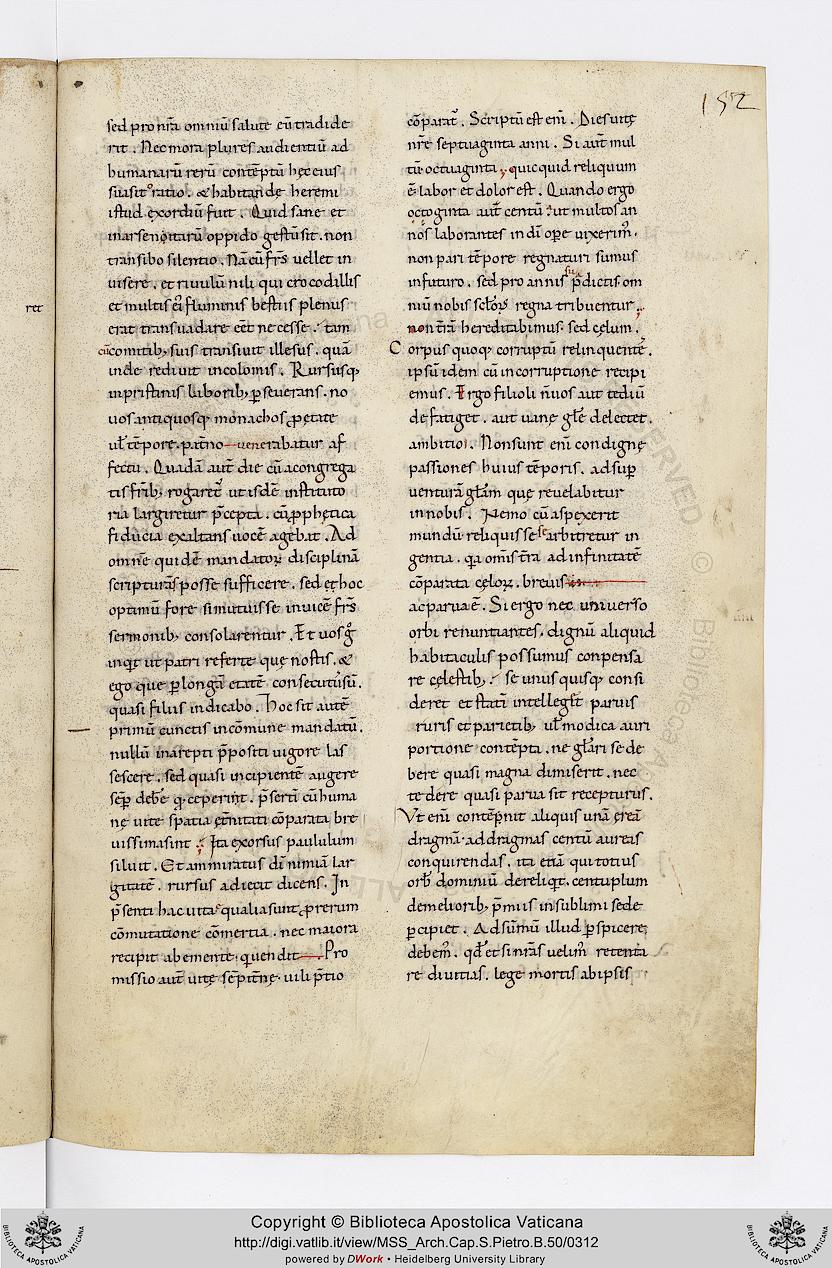 152
sed pro nr̄a omniū salute eū tradide
rit . Nec mora plures audientiū ad
humanarū rerū contēptū hęc eius
suasit oratio . & habitandę heremi
istud exordiū fuit . Quid sane et
in arsenoitarū oppido gestū sit . non
transibo silentio . Nā cū fr̄s vellet in
uisere . et riuulū nili qui crocodillis
et multis ei fluminis bestiis plenus
erat transuadare eēt necesse : tam
cū comitib; suis transiuit illesus . quā
inde rediuit incolomis . Rursusq;
in pristinis laborib; p̄seuerans . no
uos antiquosq; monachos p̄ętate
ul̄ tēpore . pat̄no uenerabatur af
fectu . Quadā aut̄ die cū a congrega
tis fr̄ib; rogaret̄ ut isdē instituto
ria largiretur p̄cepta . cū p̄phetica
fiducia exaltans uocē agebat . Ad
omnē quidē mandatoꝝ disciplinā
scripturas posse sufficere . sed et hoc
optimū fore si mutuis se inuicē fr̄s
sermonib; consolarentur . Et uos g̊
inqt ut patri referte quę nostis . &
ego que p̄ longā etatē consecutus sū .
quasi filiis indicabo . Hoc sit autē
primū cunctis in cōmune mandatū .
nullū in arepti p̄positi uigore las
sescere . sed quasi incipientē augere
sēp̄ debe q; ceperint . p̄sertī cū huma
nę uite spatia et̄nitati cōparata bre
uissima sint : Ita exorsus paululum
siluit . Et ammiratus dī nimiā lar
gitatē . rursus adiecit dicens . In
p̄senti hac uita ęqualia sunt p̄ rerum
cōmutatione cōmertia . nec maiora
recipit ab emente . qui uendit . Pro
missio aut̄ uitę sēpit̄nę . uili p̄tio
cōparat̄ . Scriptū est enī . Dies uitę
nr̄e septuaginta anni . Si aut̄ mul
tū octuaginta , quicquid reliquum
ē labor et dolor est . Quando ergo
octoginta aut̄ centū ut multos an
nos laborantes in dī ope uixerim; .
non pari tēpore regnaturi sumus
in futuro . sed pro annis p̄dictis om
niū nobis sc̄loꝝ regna tribuentur .
non t̄rā hereditabimus . sed cęlum .
Corpus quoq; corruptū relinquentē .
ipsū idem cū incorruptione recipi
emus . Ergo filioli n̄ uos aut tediū
defatiget . aut uanę gl̄e delectet .
ambitio . Non sunt enī condignę
passiones huius tēporis . ad sup̄
venturā gl̄am que reuelabitur
in nobis . Nemo cū aspexerit
mundū reliquisse se arbitretur in
gentia . qa om̄s t̄ra ad infinitatē
cōparata cęloꝝ . brevis
ac parua ē . Si ergo nec universo
orbi renuntiantes . dignū aliquid
habitaculis possumus conpensa
re cęlestib; : se unusquisq; consi
deret et statī intelleget paruis
ruris et parietib; ul̄ modica auri
portione contēpta . ne gl̄ari se de
bere quasi magna dimiserit . nec
te dere quasi parua sit recepturus .
Vt enī contēp̄nit aliquis unā ereā
dragmā . ad dragmas centū aureis
conquirendas . ita etiā qui totius
orb̄ dominiū dereliqt . centuplum
de meliorib; p̄miis in sublimi sede
p̄cipiet . Ad sūmū illud p̄spicere
debem; . qd̄ et si nr̄as velim; retenta
re diuitias . lege mortis ab ipsis
ret
Copyright © Biblioteca Apostolica Vaticana
http://digi.vatlib.it/view/MSS_Arch.Cap.S.Pietro.B.50/0312
powered by DWork • Heidelberg University Library